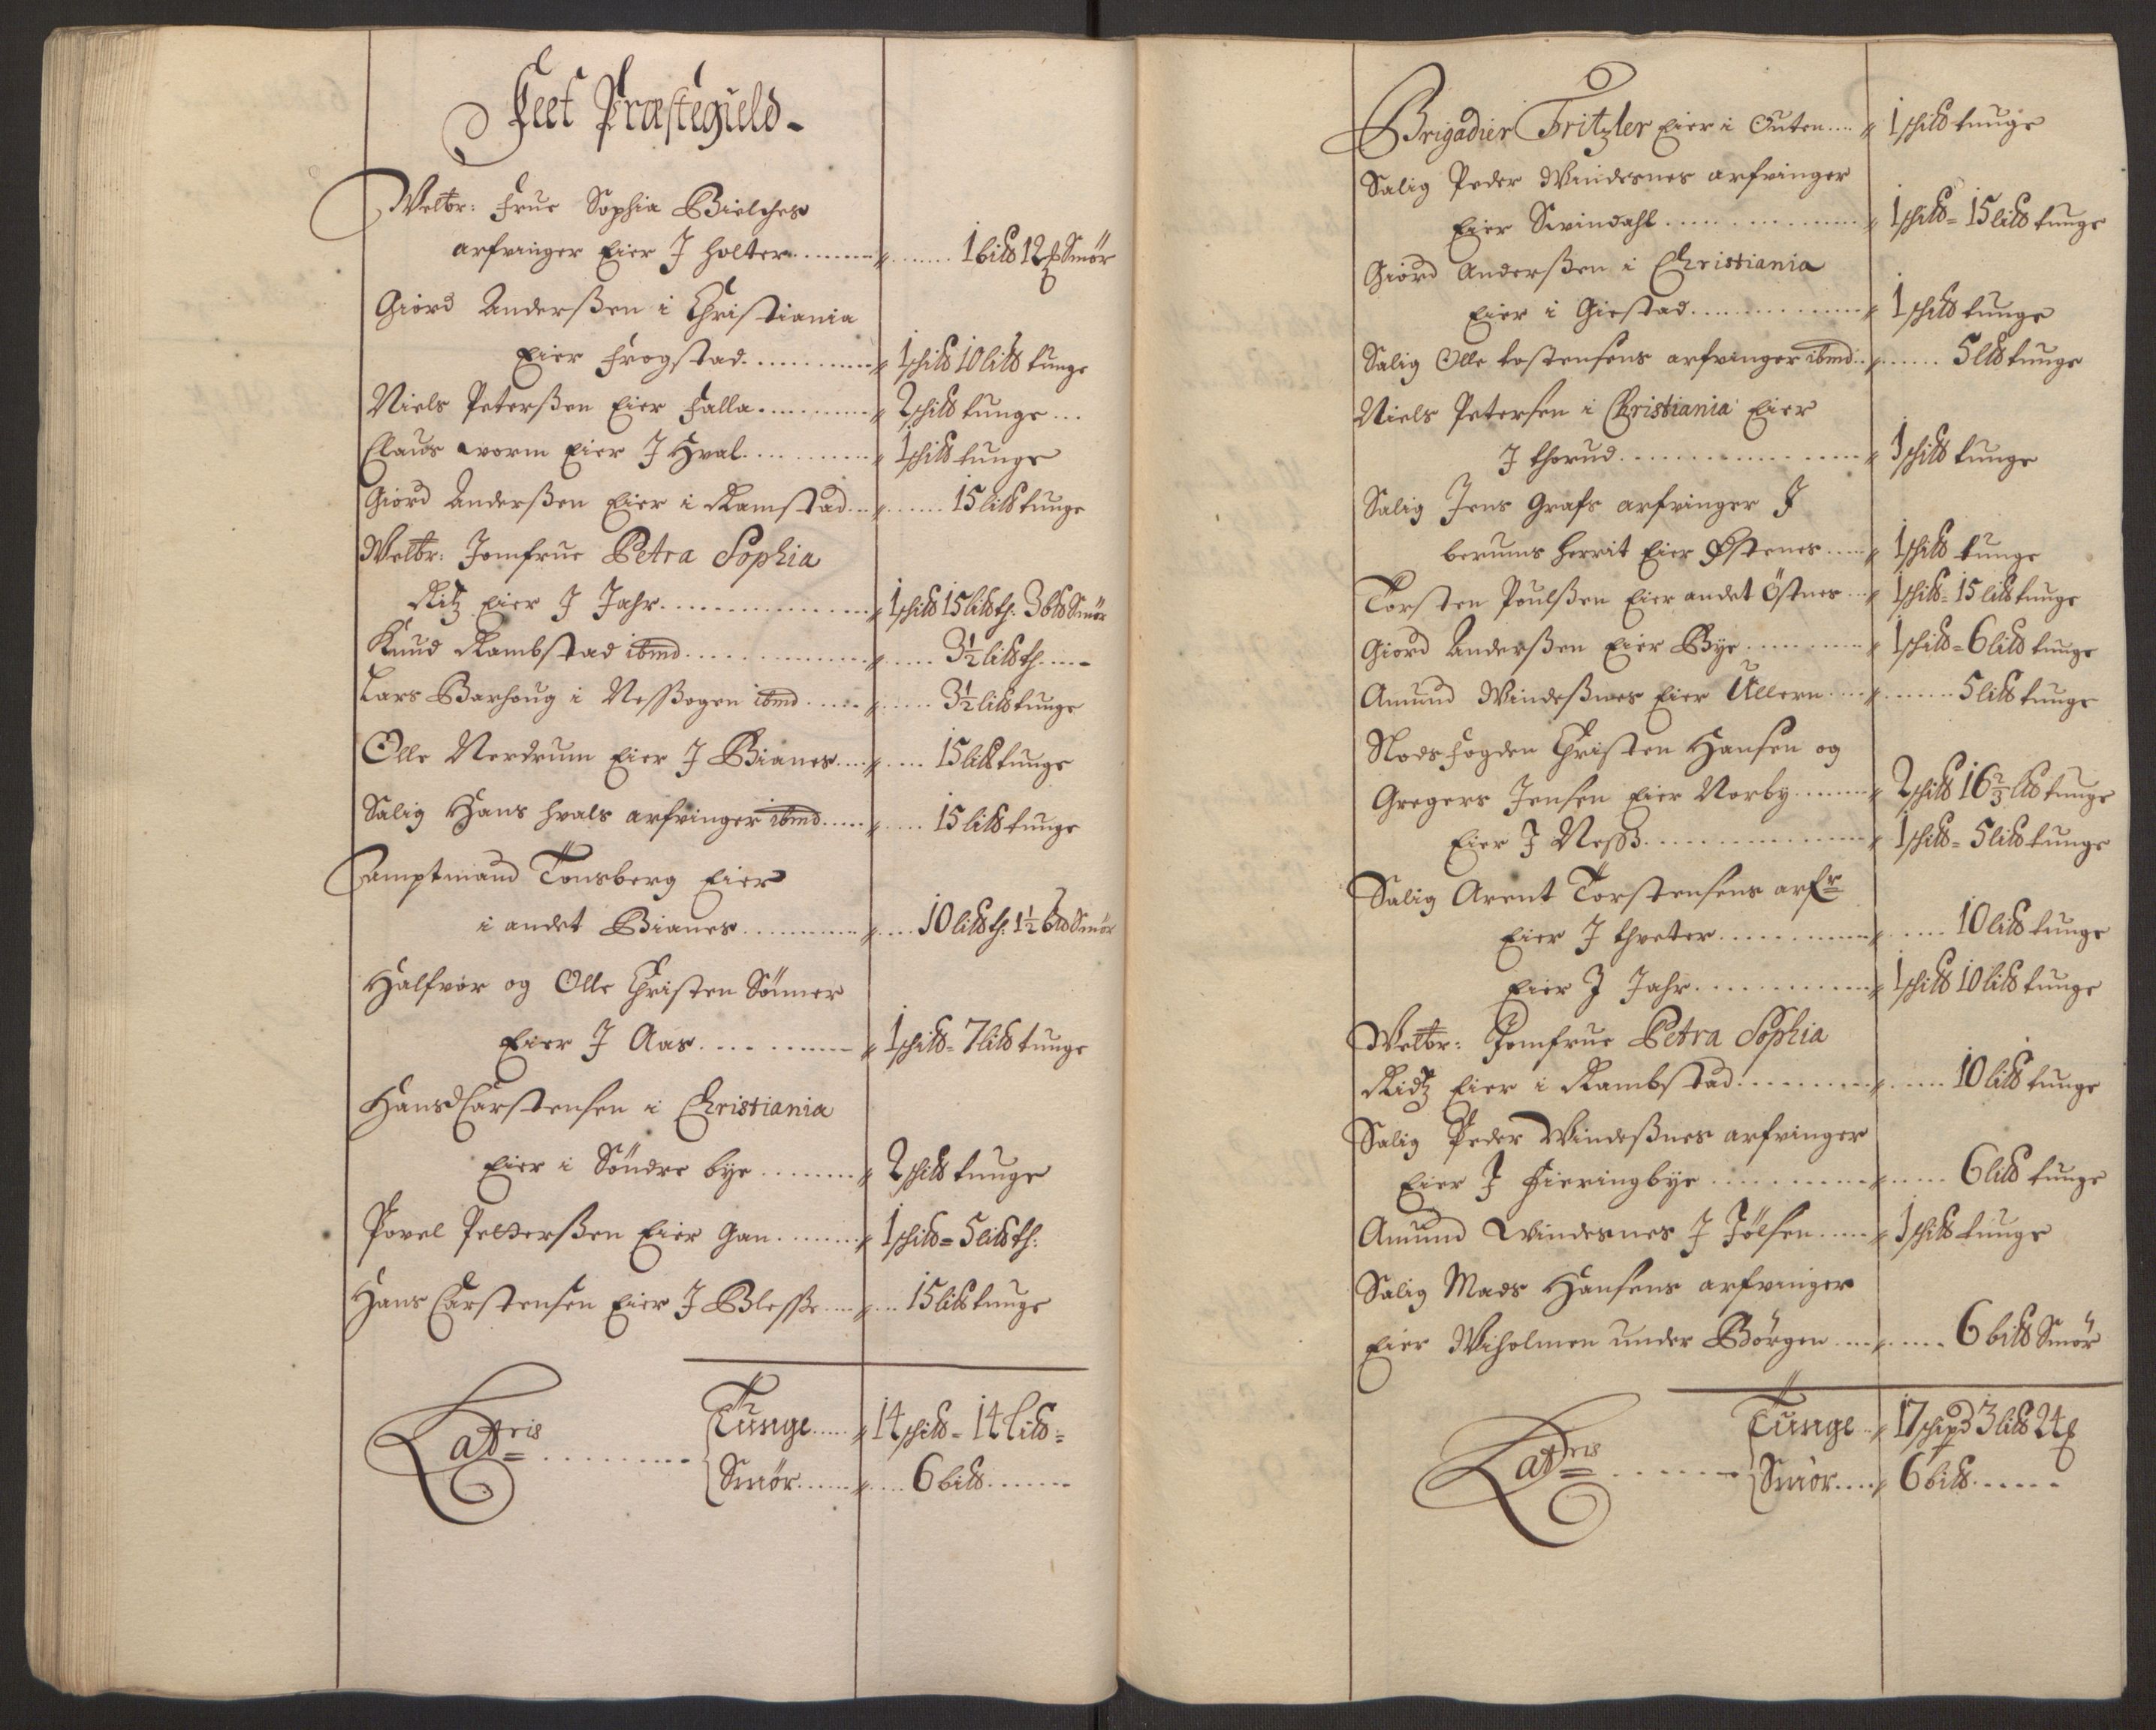 Feet Præstegield
Welbr: Frue Sophia Bielches
arfvinger Eier J Holter ........ 1 bild 12 ℔ Smör
Giord Anderßen i Christiania
Eier Frogstad ........ 1 schild 10 lild tunge
Niels Peterßen Eier Falla ........ 2 schild tunge ...
Claus Worm Eier J Hval ........ 1 schild tunge
Giord Anderßen Eier i Ramstad ........ 15 lild tunge
Welbr: Jomfrue Petra Sophia
Ritz Eier J Jahr ........ 1 schild 15 lild th. 3 bld Smör
Knud Rambstad ibmd ........ 3½ lild th. ....
Lars Barhoug i Neßogen ibmd ........ 3½ lild tunge
Olle Nerdrum Eier J Bianes ........ 15 lild tunge
Salig Hans Hvals arfvinger ibmd ........ 15 lild tunge
Amptmand Tonsberg Eier
i andet Bianes ........ 10 lild th. 1½ bld Smör
Halfvor og Olle Christen Sönner
Eier J Aas ........ 1 schild = 7 lild tunge
Hans Carstensen i Christiania
Eier i Söndre bye ........ 2 schild tunge
Povel Petterßen Eier Gan ........ 1 schild = 5 lild th.
Hans Carstensen Eier J Bleße ........ 15 lild tunge
Latris ........ Tunge ..... 14 schild = 14 lild =
Smör ....... 6 bild .......
Brigadier Fritzler Eier i Outen .... 1 schild tunge
Salig Peder Windesnes arfvinger
Eier Svindahl ........ 1 schild = 15 lild tunge
Giord Anderßen i Christiania
Eier i Giestad ........ 1 schild tunge
Salig Olle tostensens arfvinger ibmd ........ 5 lld tunge
Niels Petersen i Christiania Eier
J thorud ........ 1 schild tunge
Salig Jens Grafs arfvinger J
berums Herrit Eier Østenes ..... 1 schild tunge
Torsten Poulßen Eier andet Östnes ... 1 schild = 15 lild tunge
Giord Anderßen Eier Bye ........ 1 schild = 6 lild tunge
Amund Windeßnes Eier Ullern ........ 5 lild tunge
Slodsfogden Christen Hansen og
Gregers Jensen Eier Norby ........ 2 schild 16⅔ lld tunge
Eier J Neßß ........ 1 schild = 5 lild tunge
Salig Arent Torstensens arfr
Eier J thveter ........ 10 lild tunge
Eier J Jahr ........ 1 schild 10 lild tunge
Welbr: Jomfrue Petra Sophia
Ridtz Eier i Rambstad ........ 10 lild tunge
Salig Peder Windeßnes arfvinger
Eier J Fieringbye ........ 6 lild tunge
Amund Windesnes J Jölsen ..... 1 schild tunge
Salig Mads Hansens arfvinger
Eier Wiholmen under Börgen ........ 6 bild Smör
Latris ........ Tunge .. 17 schipd 3 lild 24 ℔
Smör .... 6 bild ......